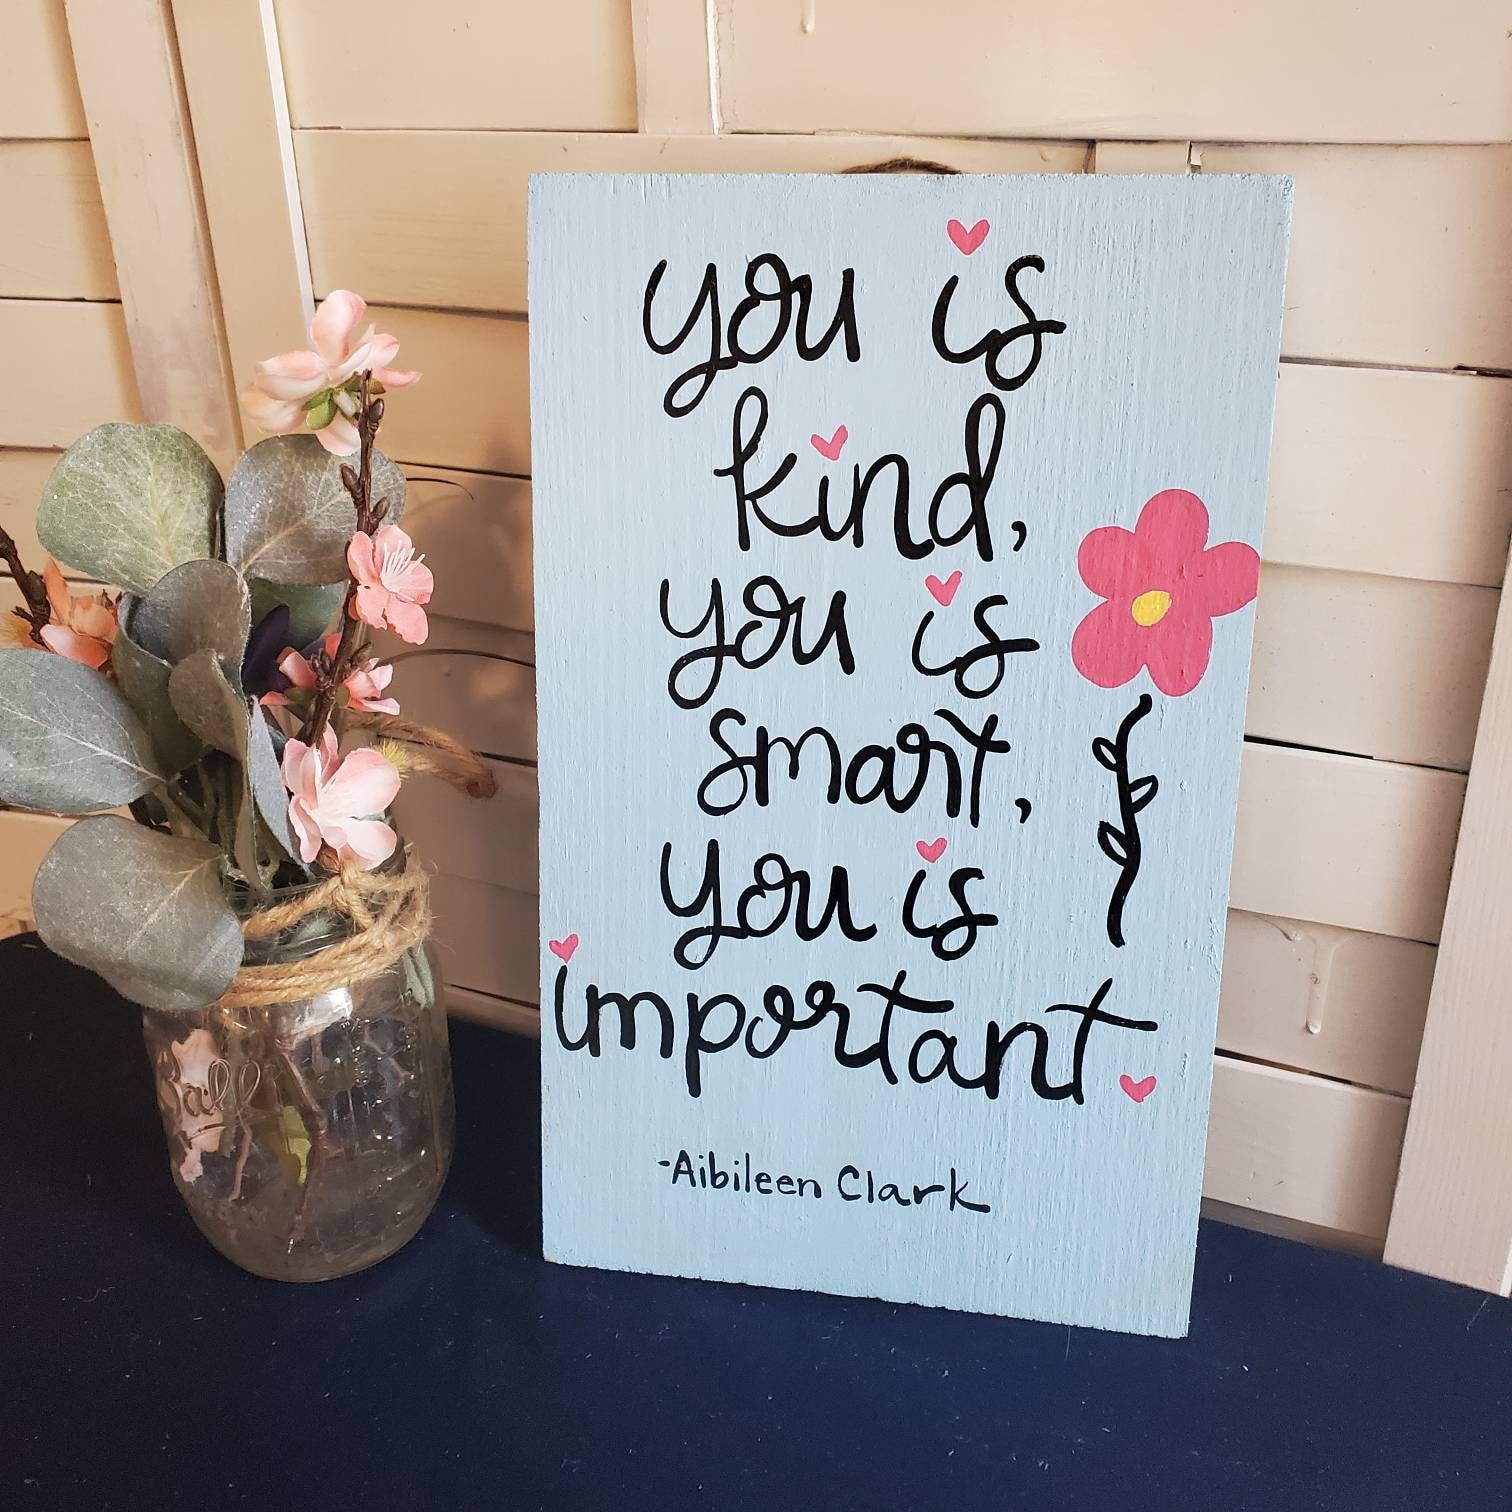 you is
kind,
you is
smart,
you is
important.
-Aibileen Clark
Ball